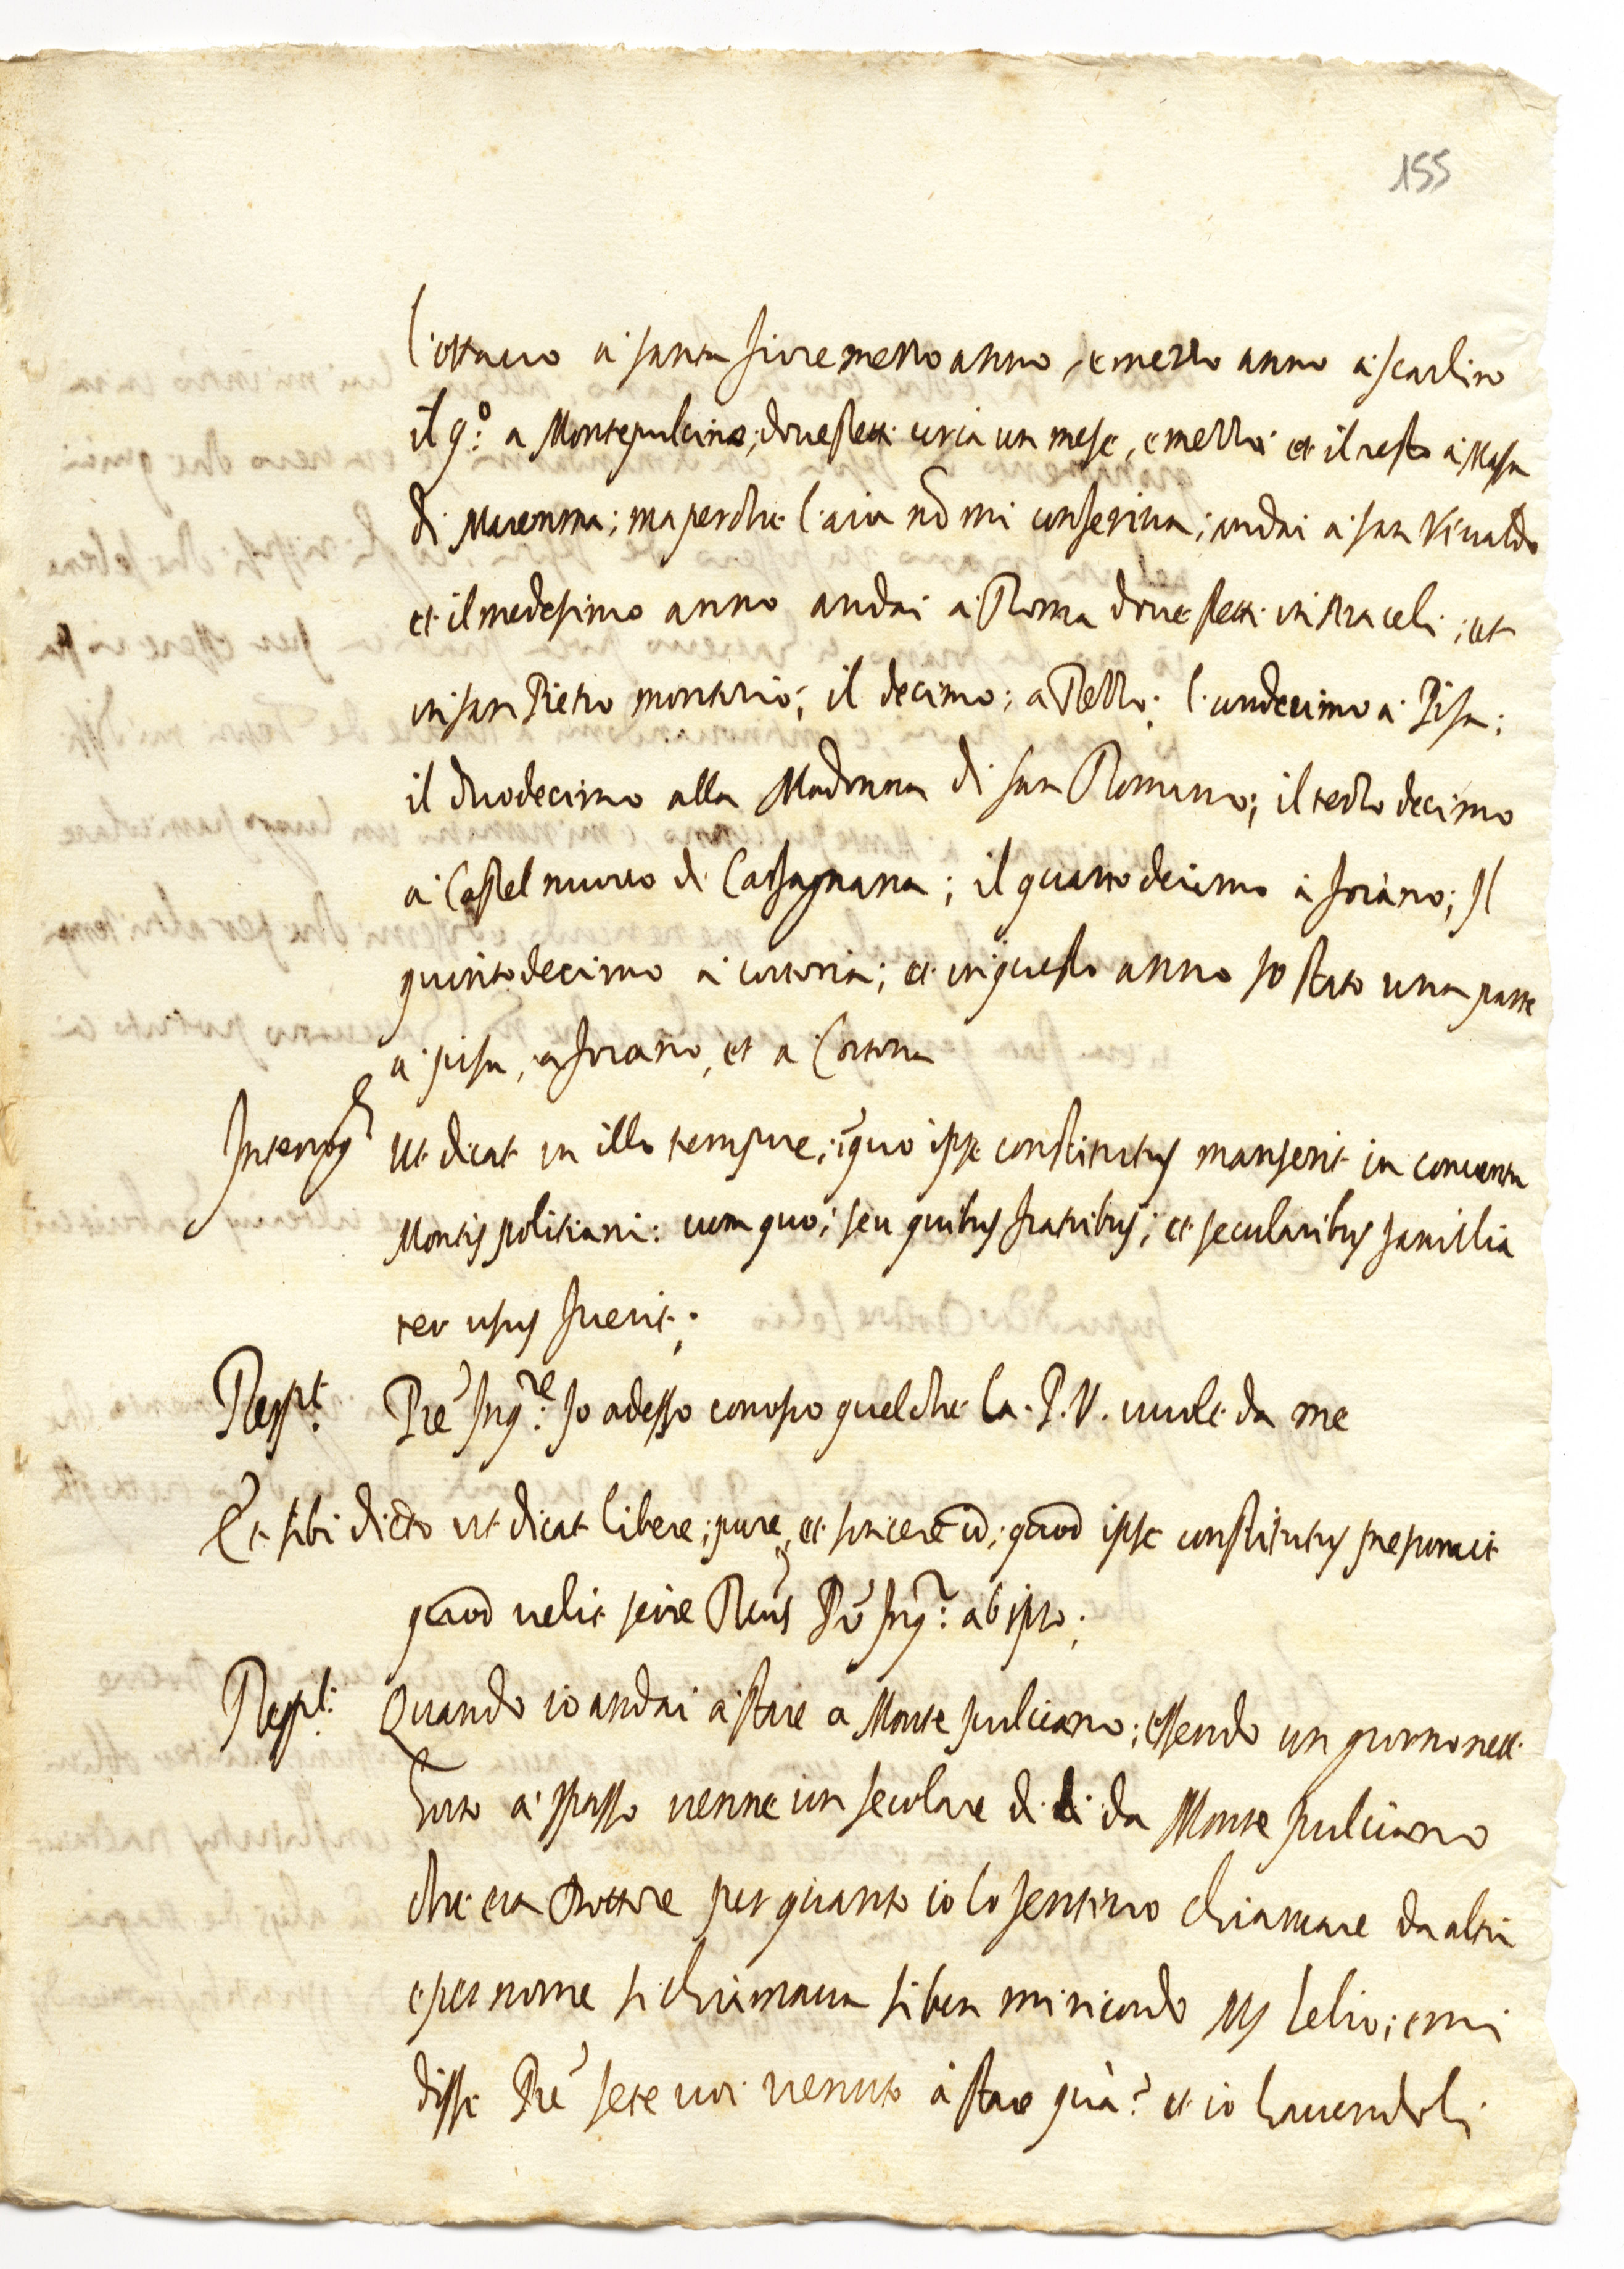 155
l'ottauo à santa fiore mezzo anno, e mezzo anno à scarlino
il 9.º a Montepulciano; doue stetti circa un mese, e mezzo et il resto à Massa
di Maremma; ma perche l'aria nō mi conseriua; andai à san Viualdo
et il medesimo anno andai à Roma doue stetti in Araceli; et
in san Pietro montorio; il decimo; a Pozzo; l'undecimo à Pisa;
il duodecimo alla Madonna di san Romano; il terzo decimo
à Castel nuouo di Carfagnana; il quarto decimo à foiano; Il
quinto decimo à cortona; et in questo anno so stato una parte
à pisa, a foiano, et a Cortona
Interrogs
Ut dicat in illo tempore; ī quo ipse constitutus manserit in conuentu
Montis politiani: cum quo; seu quibus fratribus; et secularibus familia
ter usus fuerit;
Respt:
Prē Inq:re Io adesso conosco quel che la P. V. uuole da me
Et sibi dicto ut dicat libere; pure, et sincere id; quod ipse constitutus preponit
quod uelit scire Reus Pr Inq:r ab ipso;
Respt:
Quando io andai à stare a Monte pulciano; essendo un giorno nell
horto à spasso uenne un secolare di li da Monte pulciano
che era Dottore per quanto io lo sentiuo chiamare da altri
e per nome si chiamaua si ben mi ricordo Ms lelio; e mi
disse Prē sete uoi uenuto à stare quà? et io hauendoli